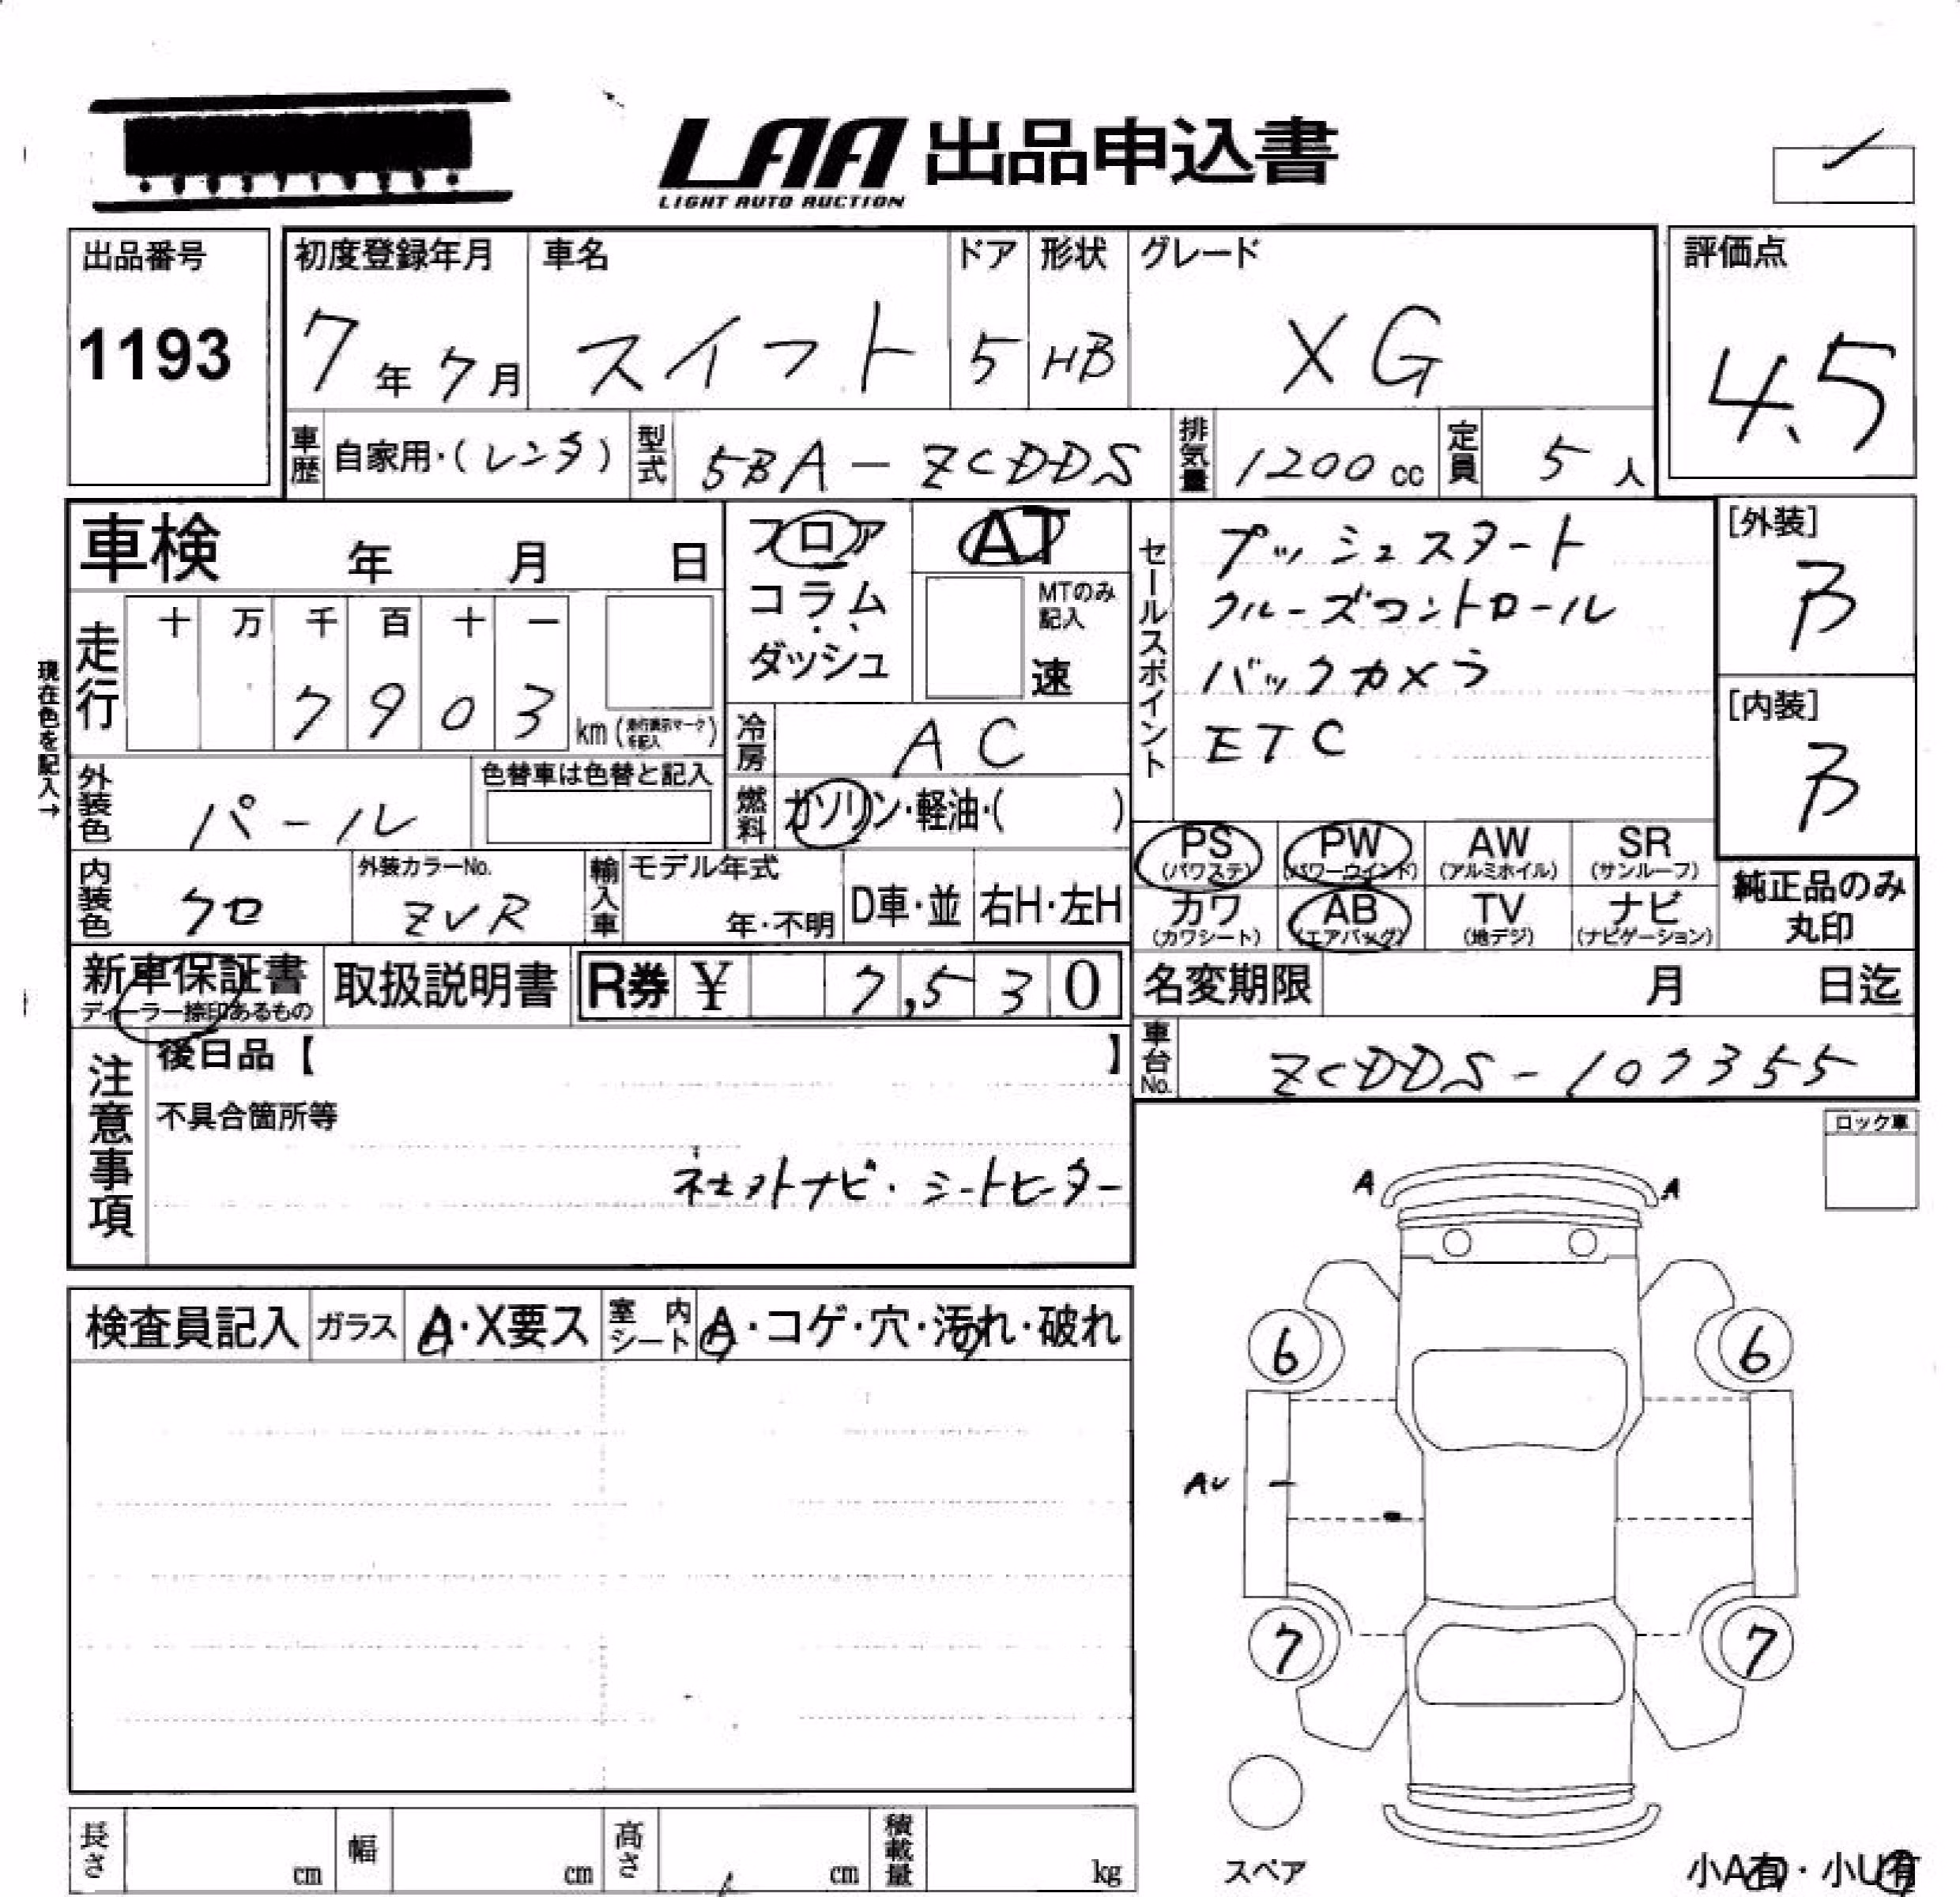 LAA 出品申込書
LIGHT AUTO AUCTION
出品番号
1193
初度登録年月
7年7月
車名
スイフト
ドア
5
形状
HB
グレード
XG
評価点
4.5
車歴
自家用・(レンタ)
型式
5BA-ZCDDS
排気量
1200cc
定員
5人
車検 年 月 日
フロア
コラム
ダッシュ
AT
MTのみ
記入
速
セールスポイント
プッシュスタート
クルーズコントロール
バックカメラ
ETC
[外装]
B
[内装]
B
現在色を記入→
走行
十 万 千 百 十 一
7 9 0 3
km(走行表示マークを記入)
冷房
AC
外装色
パール
色替車は色替と記入
燃料
ガソリン・軽油・( )
PS
(パワステ)
PW
(パワーウインド)
AW
(アルミホイル)
SR
(サンルーフ)
内装色
クロ
外装カラーNo.
ZVR
輸入車
モデル年式
年・不明
D車・並
右H・左H
カワ
(カワシート)
AB
(エアバッグ)
TV
(地デジ)
ナビ
(ナビゲーション)
純正品のみ
丸印
新車保証書
ディーラー捺印あるもの
取扱説明書
R券 ¥ 7,530
名変期限 月 日迄
車台No.
ZCDDS-107355
注意事項
後日品【 】
不具合箇所等
ネットナビ・シートヒーター
ロック車
A A
検査員記入
ガラス
A・X要ス
室内シート
A・コゲ・穴・汚れ・破れ
6 6
AU
7 7
スペア
長さ cm
幅 cm
高さ cm
積載量 kg
小A有・小U有